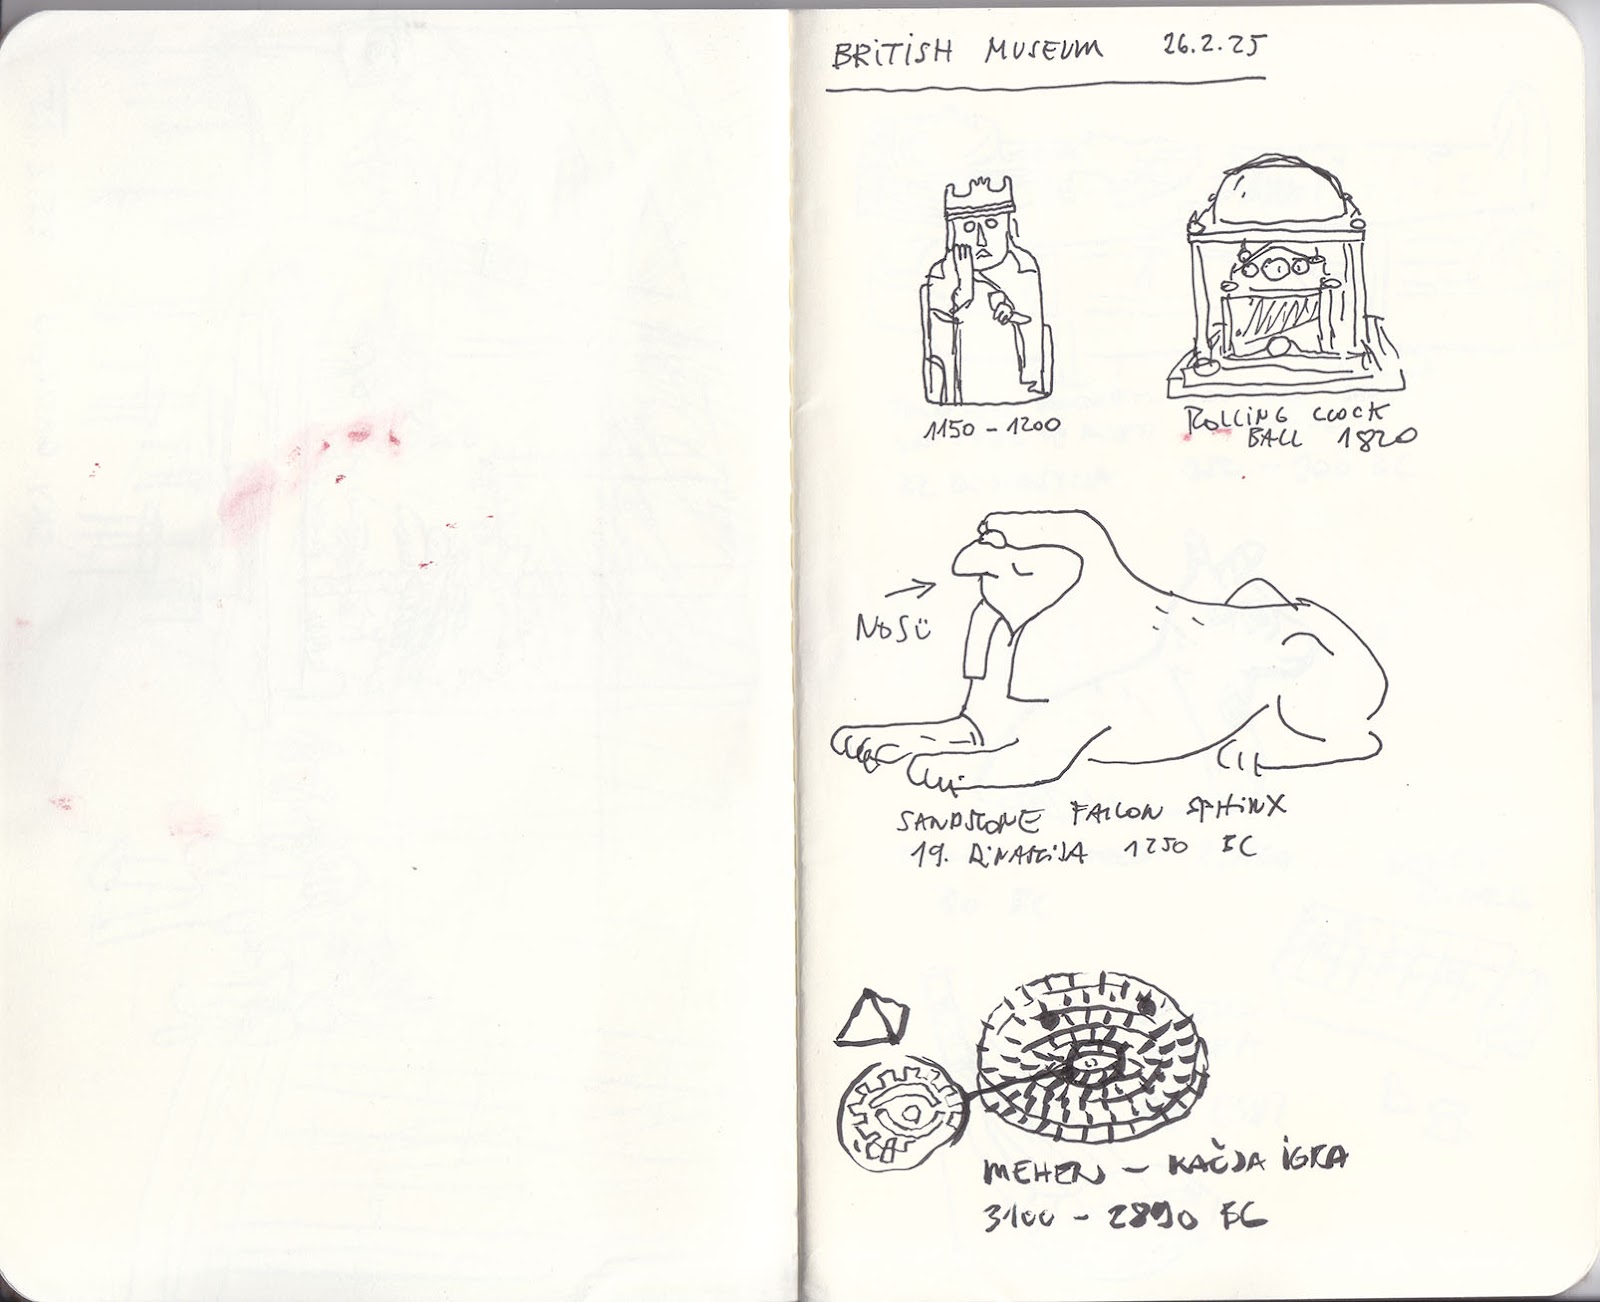 BRITISH MUSEUM 26.2.25
1150 - 1200
ROLLING CLOCK
BALL 1820
NOS Ü
SANDSTONE FALCON SPHINX
19. DINASTIJA 1250 BC
MEHEN - KAČJA IGRA
3100 - 2890 BC